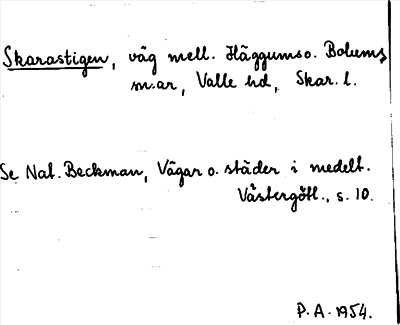 Skarastigen, väg mell. Häggums o. Bolums
sn:ar, Valle hd, Skar. l.
Se Nat. Beckman, Vägar o. städer i medelt.
Västergötl., s. 10.
P. A. 1954.